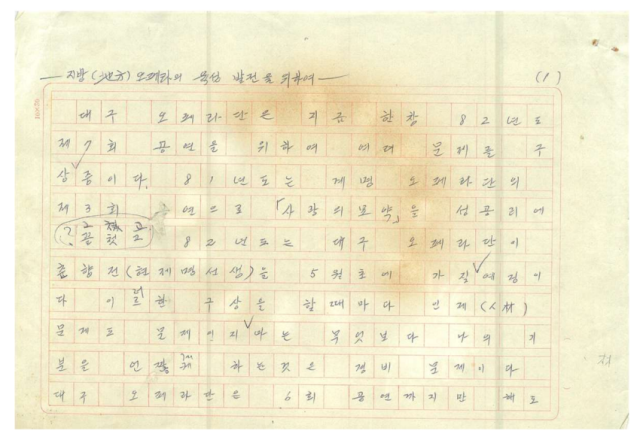 — 지방(地方) 오페라의 육성 발전을 위하여 — (1)
대구 오페라단은 지금 한창 82년도
제7회 공연을 위하여 여러 문제를 구
상중이다. 81년도는 계명 오페라단의
제3회 연으로 「사랑의 묘약」을 성공리에
82년도는 대구 오페라단이
춘향전(현제명선생)을 5월초에 가질 예정이
다 이러한 구상을 할때마다 인재(人材)
문제도 문제이지마는 무엇보다 나의 기
분을 언짢게 하는것은 경비 문제이다
대구 오페라단은 6회 공연까지만 해도